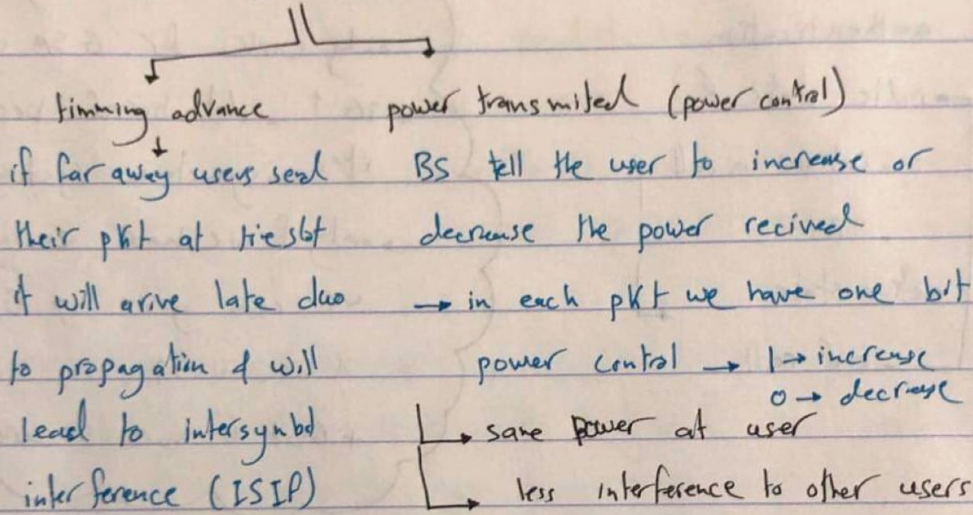 timming advance
if far away users send
their pkt at tieslot
it will arive late duo
to propagation & will
lead to intersymbol
interference (ISIP)
power transmited (power control)
BS tell the user to increase or
decrease the power recived
→ in each pkt we have one bit
power control → 1 → increase
0 → decrease
↳ same power at user
↳ less interference to other users